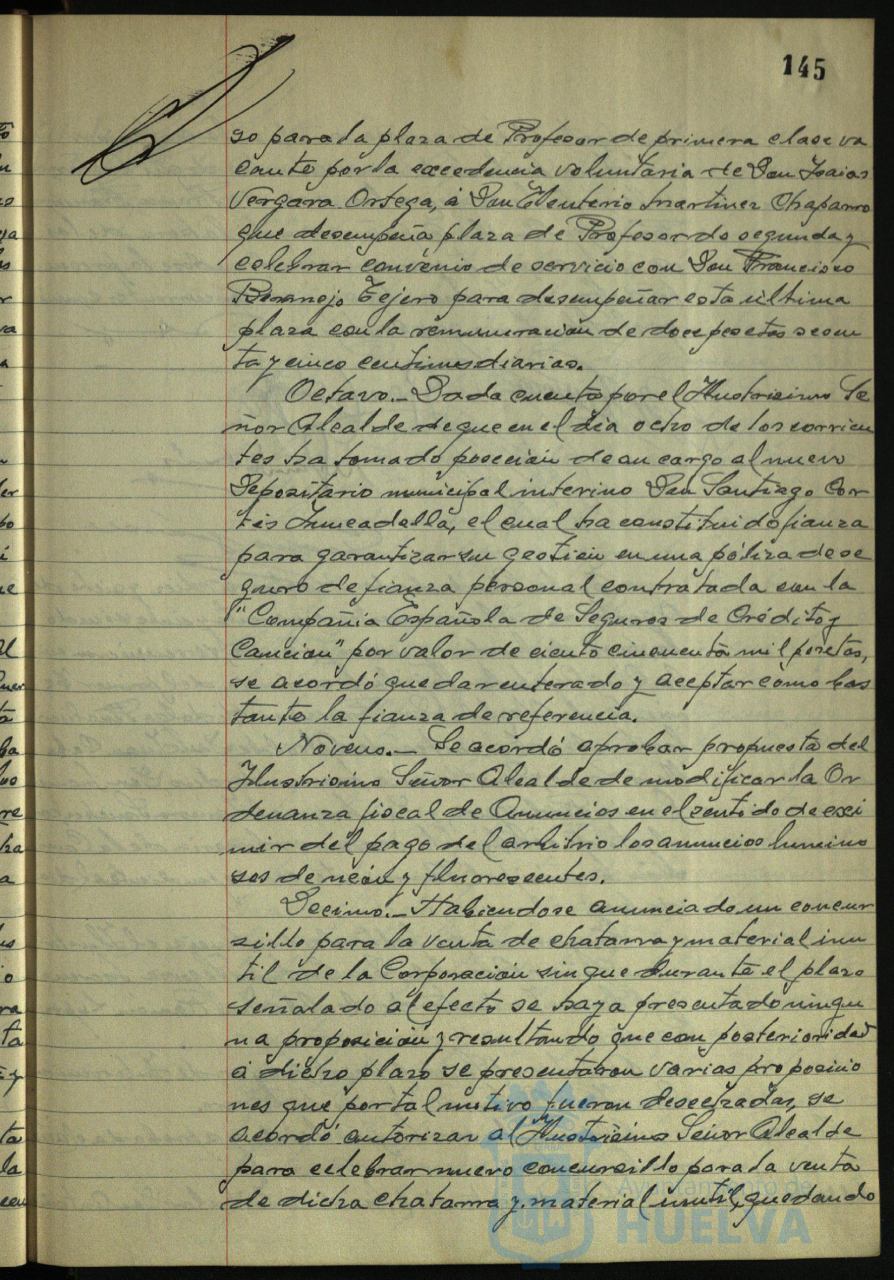 145
so para la plaza de Profesor de primera clase va
cante por la excedencia voluntaria de Don Isaias
Vergara Ortega, á Don Eleuterio Martinez Chaparro
que desempeña plaza de Profesor de segunda y
celebrar convenio de servicio con Don Francisco
Bermejo Tejero para desempeñar esta última
plaza con la remuneración de doce pesetas sesen
ta y cinco centimos diarias.
Octavo.- Dada cuenta por el Ilustrisimo Se
ñor Alcalde de que en el dia ocho de los corrien
tes ha tomado posecion de su cargo al nuevo
Depositario municipal interino Don Santiago Cor
tés, el cual ha constituido fianza
para garantizar su gestion en una póliza de se
guro de fianza personal contratada con la
"Compañia Española de Seguros de Crédito y
Caucion" por valor de ciento cincuenta mil pesetas,
se acordó quedar enterado y aceptar cómo bas
tante la fianza de referencia.
Noveno.- Se acordó aprobar propuesta del
Ilustrisimo Señor Alcalde de modificar la Or
denanza fiscal de Anuncios en el sentido de exi
mir del pago del arbitrio los anuncios lumino
sos de neón y fluorescentes.
Decimo.- Habiendose anunciado un concur
sillo para la venta de chatarra y material inu
til de la Corporación sin que durante el plazo
señalado al efecto se haya presentado ningu
na proposición y resultando que con posterioridad
á dicho plazo se presentaron varias proposicio
nes que por tal motivo fueron desechadas, se
acordó autorizar al Ilustrisimo Señor Alcalde
para celebrar nuevo concursillo para la venta
de dicha chatarra y material inutil, quedando
Ayuntamiento de
HUELVA